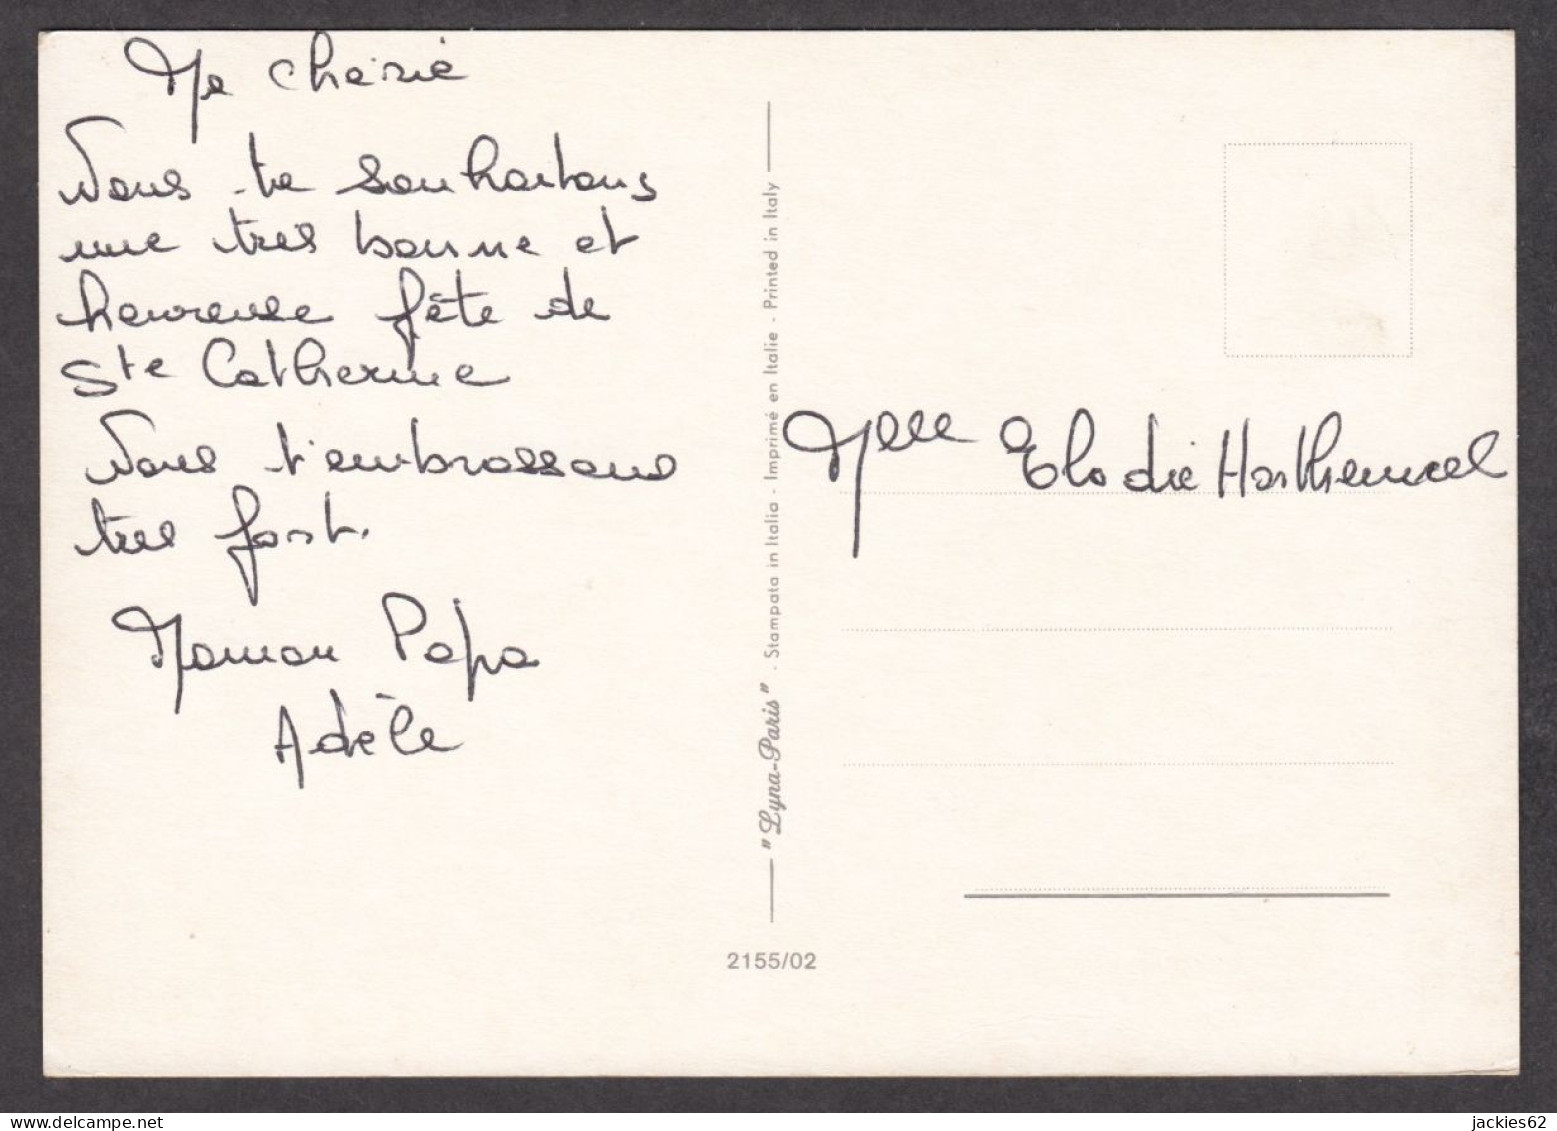 Ma Chérie
Nous te souhaitons
une très bonne et
heureuse fête de
Ste Catherine
Nous t'embrassons
très fort.
Maman Papa
Adèle
"Lyna-Paris" - Stampata in Italia - Imprimé en Italie - Printed in Italy
2155/02
Melle Elodie
delcampe.net
jackies62